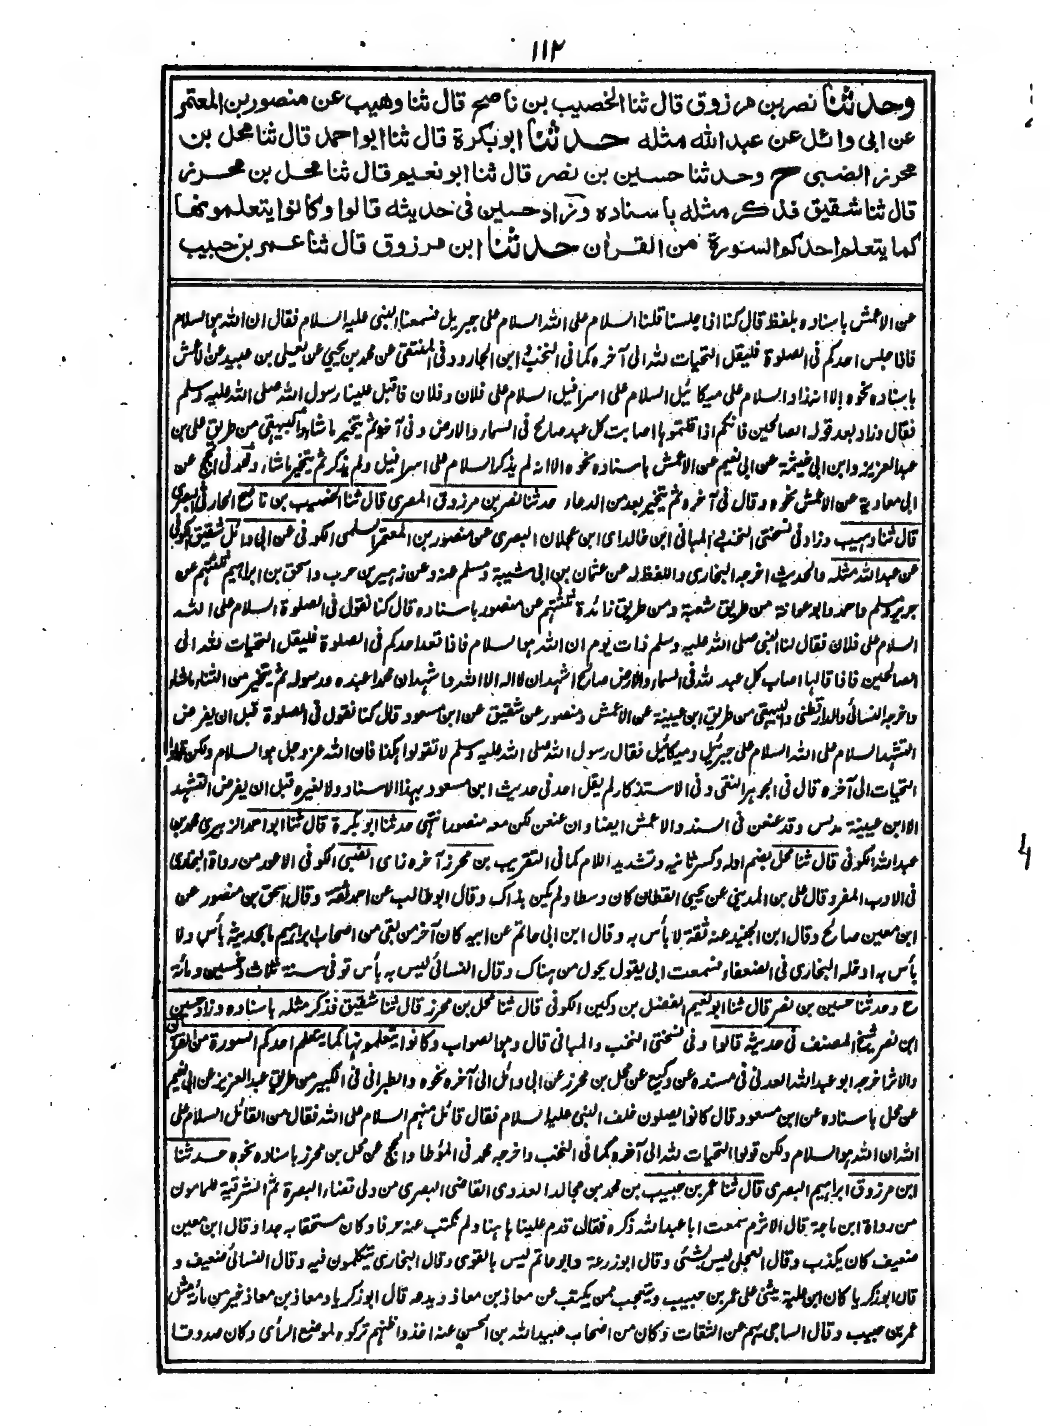 ١١٢
وحدثنا نصر بن مرزوق قال ثنا الخصيب بن ناصح قال ثنا وهيب عن منصور بن المعتمر
عن ابى وائل عن عبد الله مثله حدثنا ابو بكرة قال ثنا ابو احمد قال ثنا محل بن
محرز الضبى ح وحدثنا حسين بن نصر قال ثنا ابو نعيم قال ثنا محل بن محرز
قال ثنا شقيق فذكر مثله باسناده وزاد حسين فى حديثه قالوا وكانوا يتعلمونها
كما يتعلم احدكم السورة من القران حدثنا ابن مرزوق قال ثنا عمر بن حبيب
عن الاعمش باسناده بلفظ قال كنا اذا جلسنا قلنا السلام على الله السلام على جبريل فسمعنا النبى عليه السلام فقال ان الله هو السلام
فاذا جلس احدكم فى الصلوة فليقل التحيات لله الى آخره كما فى النخب ابن الجارود فى المنتقى عن محمد بن يحيى عن يعلى بن عبيد عن الاعمش
باسناده نحوه الا انه زاد السلام على ميكائيل السلام على اسرافيل السلام على فلان وفلان فاقبل علينا رسول الله صلى الله عليه وسلم
فقال وزاد بعد قوله الصالحين فانكم اذا قلتموها اصابت كل عبد صالح فى السماء والارض وفى آخره ثم يتخير ما شاء والبيهقى من طريق على بن
عبد العزيز وابن ابى خيثمة عن ابى نعيم عن الاعمش باسناده نحوه الا انه لم يذكر السلام على اسرافيل ولم يذكر ثم يتخير ما شاء ومحمد فى الحجج عن
ابى معاوية عن الاعمش نحوه وقال فى آخره ثم يتخير بعد من الدعاء حدثنا نصر بن مرزوق المصرى قال ثنا الخصيب بن ناصح الحارثى البصرى
قال ثنا وهيب وزاد فى نسختى النخب والمبانى ابن خالد اى ابن عجلان البصرى عن منصور بن المعتمر السلمى الكوفى عن ابى وائل شقيق الكوفى
عن عبد الله مثله والحديث اخرجه البخارى واللفظ له عن عثمان بن ابى شيبة ومسلم عنه وعن زهير بن حرب واسحق بن ابراهيم ثلثتهم عن
جرير ومسلم واحمد وابو عوانة من طريق شعبة ومن طريق زائدة ثلثتهم عن منصور باسناده قال كنا نقول فى الصلوة السلام على الله
السلام على فلان فقال لنا النبى صلى الله عليه وسلم ذات يوم ان الله هو السلام فاذا قعد احدكم فى الصلوة فليقل التحيات لله الى
الصالحين فاذا قالها اصاب كل عبد لله فى السماء والارض صالح اشهد ان لا اله الا الله واشهد ان محمدا عبده ورسوله ثم يتخير من الثناء ما شاء
واخرجه النسائى والدارقطنى والبيهقى من طريق ابن عيينة عن الاعمش ومنصور عن شقيق عن ابن مسعود قال كنا نقول فى الصلوة قبل ان يفرض
التشهد السلام على الله السلام على جبرئيل وميكائيل فقال رسول الله صلى الله عليه وسلم لا تقولوا هكذا فان الله عز وجل هو السلام ولكن قولوا
التحيات الى آخره قال فى الجوهر النقى وفى الاستذكار لم يقل احد فى حديث ابن مسعود بهذا الاسناد ولا لغيره قبل ان يفرض التشهد
الا ابن عيينة مدلس وقد عنعن فى السند والاعمش ايضا وان عنعن لكن معه منصور انتهى حدثنا ابو بكرة قال ثنا ابو احمد الزبيرى محمد بن
عبد الله الكوفى قال ثنا محل بضم اوله وكسر ثانيه وتشديد اللام كما فى التقريب بن محرز آخره زاى الضبى الكوفى الاعور من رواة البخارى
فى الادب المفرد قال على بن المدينى عن يحيى القطان كان وسطا ولم يكن بذاك وقال ابو طالب عن احمد ثقة وقال اسحق بن منصور عن
ابن معين صالح وقال ابن الجنيد عنه ثقة لا بأس به وقال ابن ابى حاتم عن ابيه كان آخر من بقى من اصحاب ابراهيم ما بحديثه بأس ولا
بأس به ادخله البخارى فى الضعفاء فسمعت ابى يقول يحول من هناك وقال النسائى ليس به بأس توفى سنة ثلاث وخمسين ومائة
ح وحدثنا حسين بن نصر قال ثنا ابو نعيم الفضل بن دكين الكوفى قال ثنا محل بن محرز قال ثنا شقيق فذكر مثله باسناده وزاد حسين
ابن نصر شيخ المصنف فى حديثه قالوا وفى نسختى النخب والمبانى قال وهو الصواب وكانوا يتعلمونها كما يتعلم احدكم السورة من القرآن
والاثر اخرجه ابو عبد الله العدنى فى مسنده عن وكيع عن محل بن محرز عن ابى وائل الى آخره نحوه والطبرانى فى الكبير من طريق عبد العزيز عن ابى نعيم
عن محل باسناده عن ابن مسعود قال كانوا يصلون خلف النبى عليه السلام فقال قائل منهم السلام على الله فقال من القائل السلام على
الله ان الله هو السلام ولكن قولوا التحيات لله الى آخره كما فى النخب واخرجه محمد فى المؤطا والحجج عن محل بن محرز باسناده نحوه حدثنا
ابن مرزوق ابراهيم البصرى قال ثنا عمر بن حبيب بن محمد بن مجالد العدوى القاضى البصرى من ولى قضاء البصرة ثم الشرقية للمامون
من رواة ابن ماجة قال الاثرم سمعت ابا عبد الله ذكره فقال قدم علينا ههنا ولم نكتب عنه حرفا وكان مستخفا به جدا وقال ابن معين
ضعيف كان يكذب وقال العجلى ليس بشئى وقال ابو زرعة وابو حاتم ليس بالقوى وقال البخارى يتكلمون فيه وقال النسائى ضعيف و
قال ابو زكريا كان ابن علية يثنى على عمر بن حبيب ويتعجب ممن يكتب عن معاذ بن معاذ ويدعه قال ابو زكريا ومعاذ بن معاذ خير من مائة مثل
عمر بن حبيب وقال الساجى يهم عن الثقات وكان من اصحاب عبيد الله بن الحسن عنه اخذ واظنهم تركوه لموضع الرأى وكان صدوقا